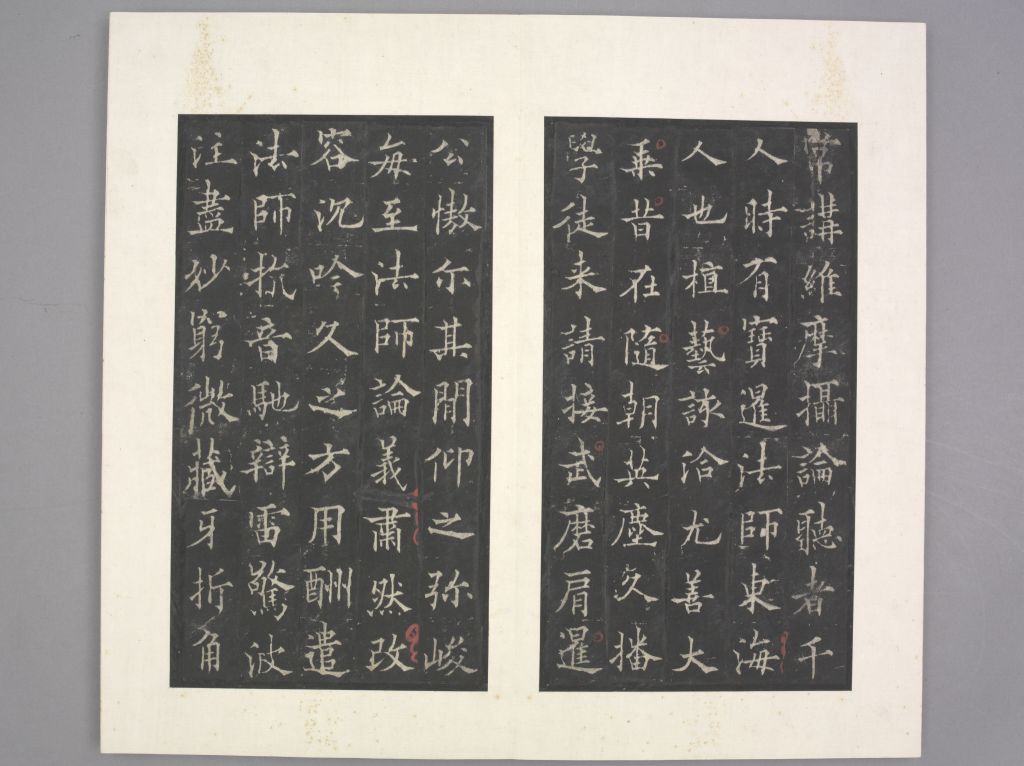 常講維摩攝論聽者千
人時有寶暹法師東海
人也植藝詠洽尤善大
乗昔在隨朝英塵久播
學徒来請接武磨肩暹
公憿尓其閒仰之弥峻
每至法師論義肅然改
容沉吟久之方用酬遣
法師抗音馳辯雷驚波
注盡妙窮微藏牙折角